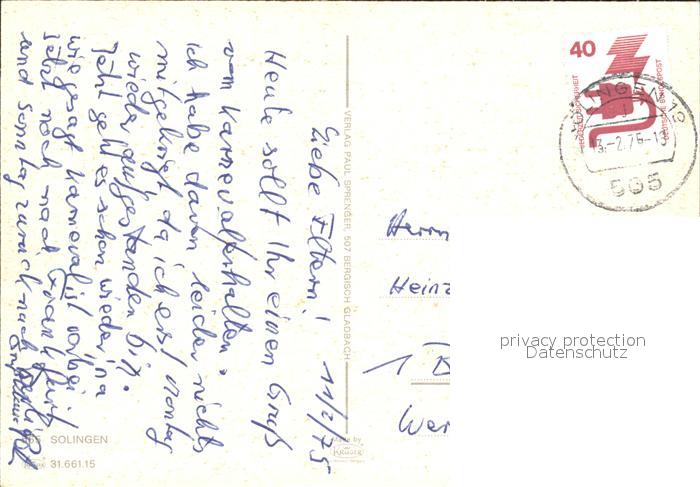 Liebe Eltern! 11/2/75
Heute sollt Ihr einen Gruß
vom Karneval erhalten.
Ich habe davon leider nichts
mitgekriegt da ich erst Montag
wieder aufgestanden bin.
Jetzt geht es schon wieder, na
wie gesagt Karneval ist vorbei
Fahrt noch nach Frankfurt
und Sonntag zurück nach Berlin
VERLAG PAUL SPRENGER, 507 BERGISCH GLADBACH
565 SOLINGEN
31.661.15
Made by
KRÜGER
40
DEUTSCHE BUNDESPOST
SOLINGEN 12
-2.76-13
565
Herrn
Heinz
1 B
Wer
privacy protection
Datenschutz